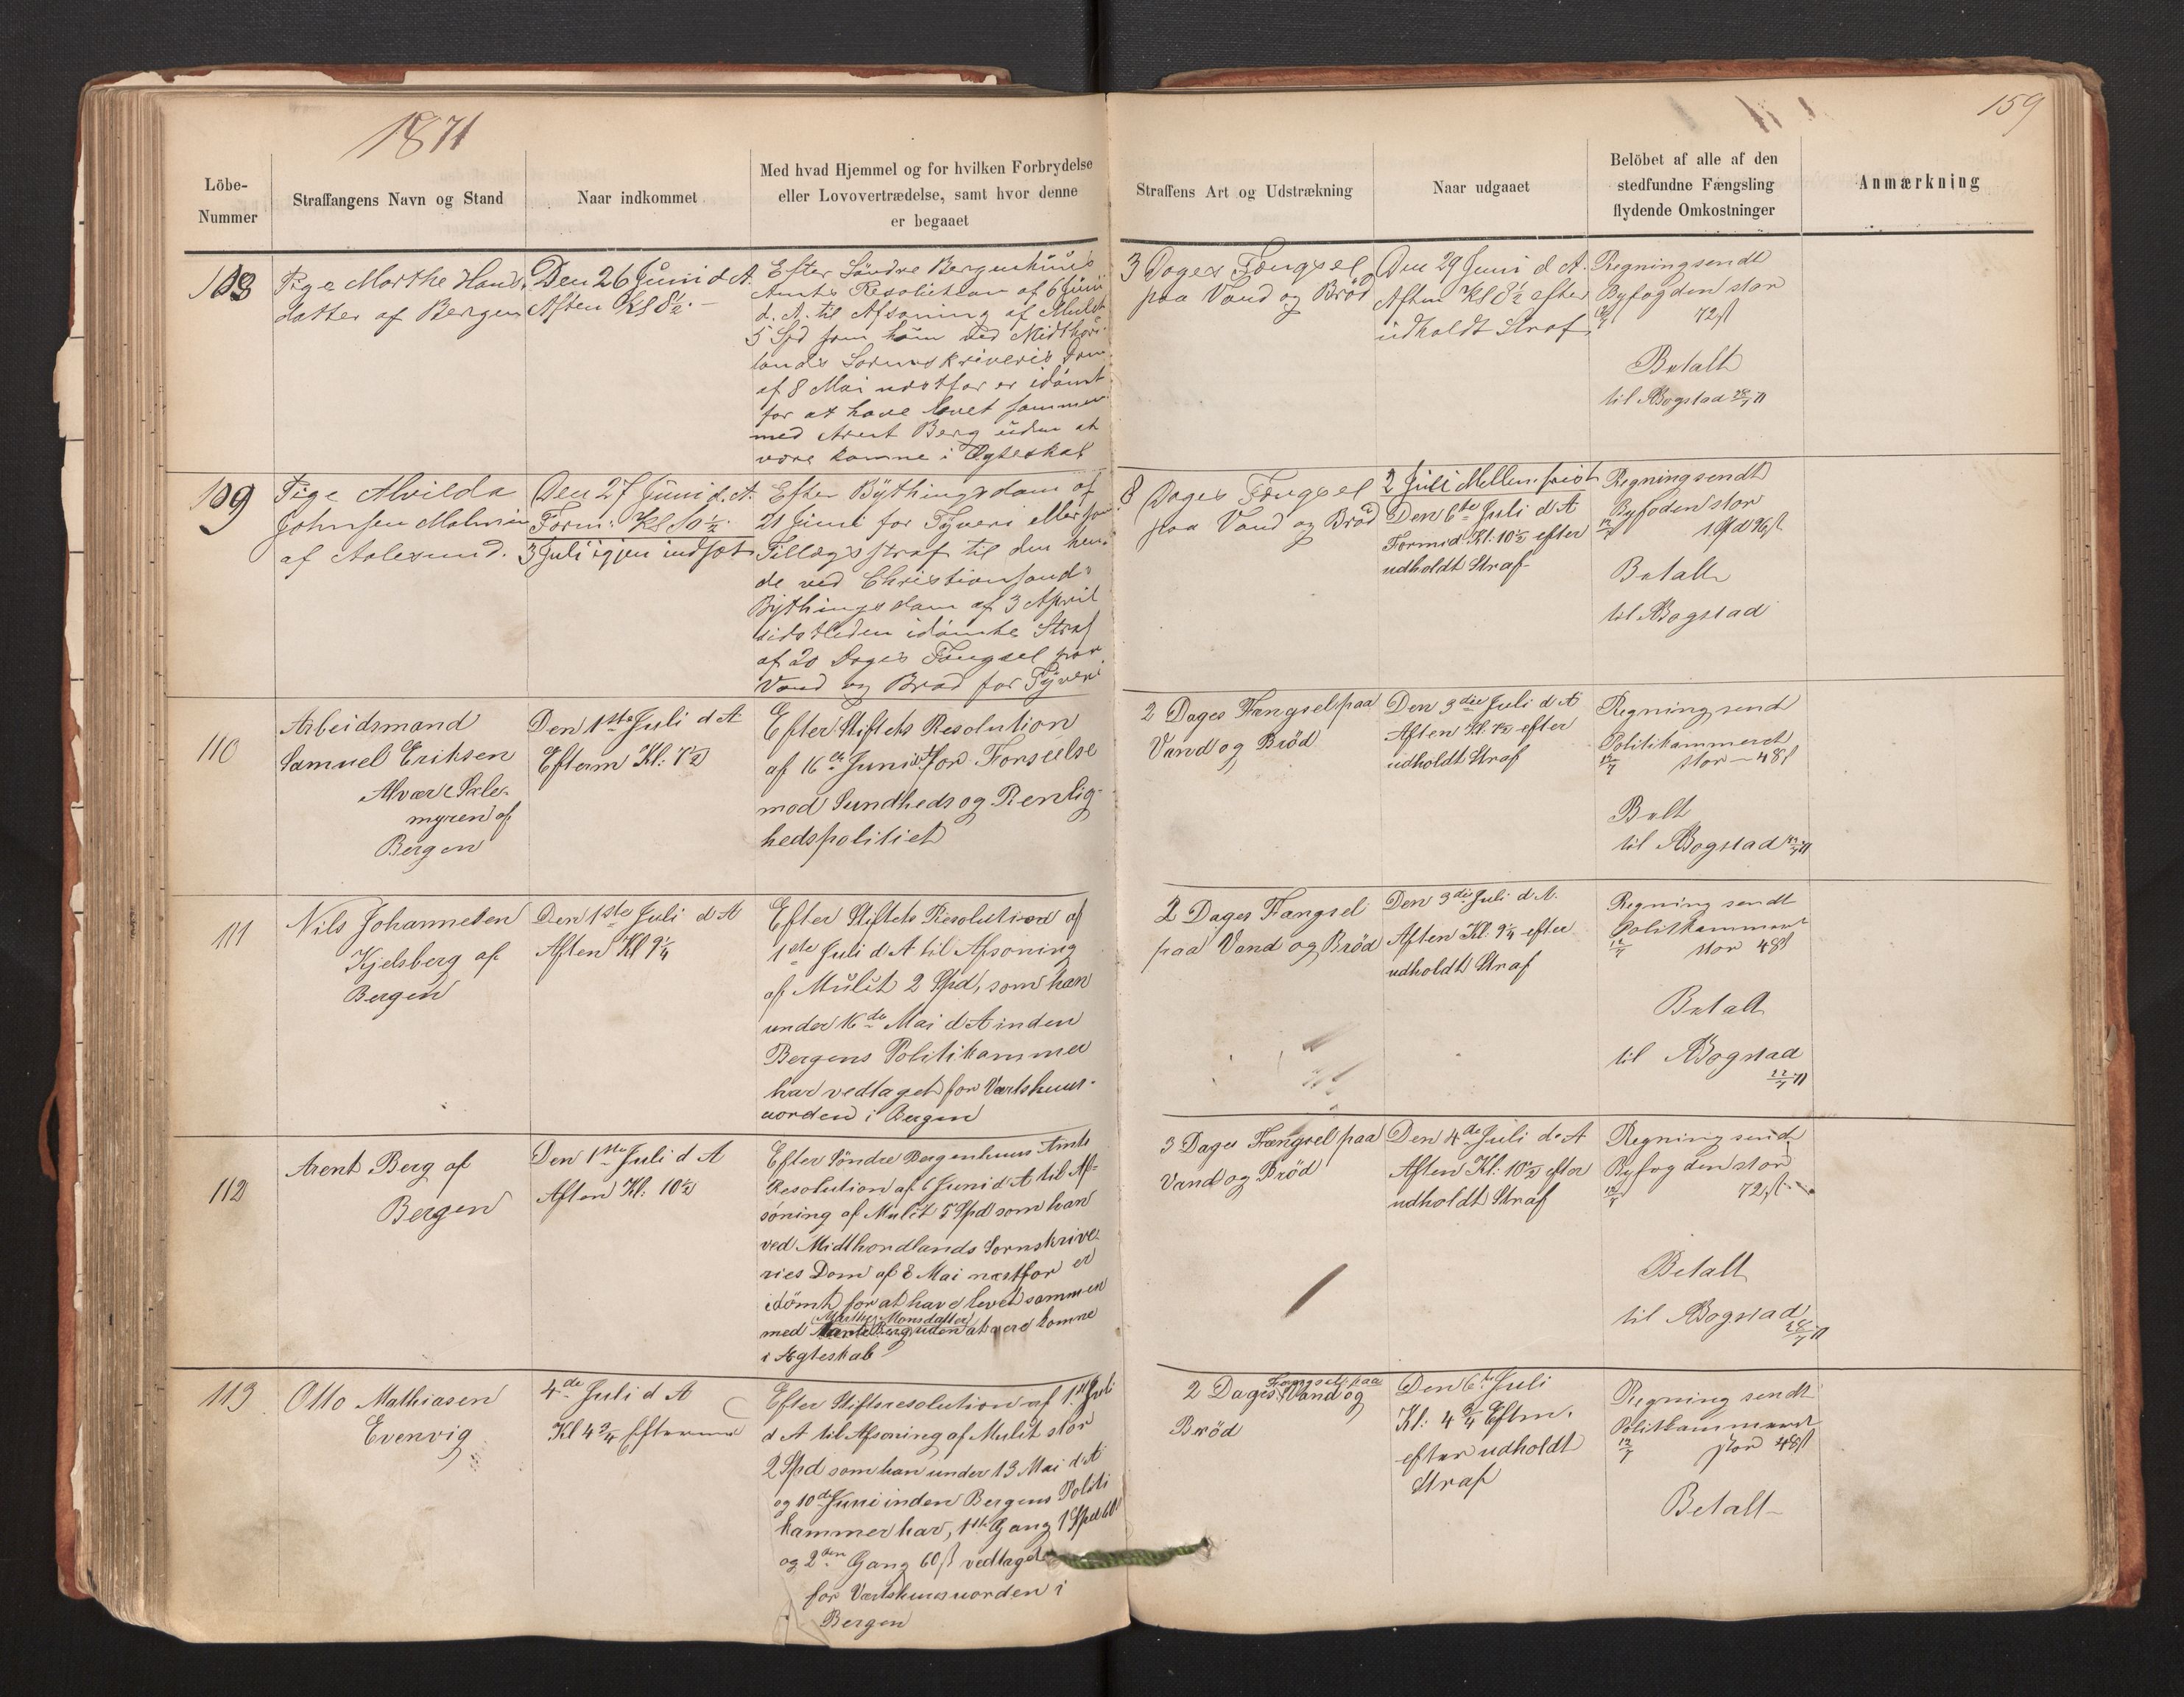 1871
159
Löbe-
Nummer
Straffangens Navn og Stand
Naar indkommet
Med hvad Hjemmel og for hvilken Forbrydelse
eller Lovovertrædelse, samt hvor denne
er begaaet
Straffens Art og Udstrækning
Naar udgaaet
Belöbet af alle af den
stedfundne Fængsling
flydende Omkostninger
Anmærkning
108
Pige Marthe Hans
datter af Bergen
Den 26 Juni d. A.
Aften Kl 8½.
Efter Søndre Bergenhuus
Amts Resolution af 6 Juni
d. A. til Afsoning af Mulct
5 Spd som hun ved Midthor
lands Sorenskriveris Dom
af 8 Mai næstfor er idømt
for at have levet sammen
med Arent Berg uden at
være komne i Ægteskab
3 Dages Fængsel
paa Vand og Bröd
Den 29 Juni d. A.
Aften Kl 8½ efter
udholdt Straf
Regning sendt
Byfogden stor
72 ß
Betalt
til Bogstad
109
Pige Alvilda
Johnsen Malmin
af Aalesund.
Den 27 Juni d. A.
Form: Kl 10½.
3 Juli igjen indsat
Efter Bythingsdom af
21 Juni for Tyveri eller som
Tillægsstraf til den hen
de ved Christiansands
Bythingsdom af 3 April
sidstleden idømte Straf
af 20 Dages Fængsel paa
Vand og Brød for Tyveri
8 Dages Fængsel
paa Vand og Bröd
2 Juli Mellemfrist
Den 6te Juli d A
Formid. Kl: 10½ efter
udholdt Straf
Regning sendt
Byfoden stor
1 Spd 96 ß
Betalt
til Bogstad
110
Arbeidsmand
Samuel Eriksen
Alvær Sale-
myren af
Bergen
Den 1ste Juli d A
Efterm Kl: 7½
Efter Stiftets Resolution
af 16de Juni for Forseelse
mod Sundheds og Renlig-
hedspolitiet
2 Dages Fængsel paa
Vand og Bröd
Den 3die Juli d A
Aften Kl: 7½ efter
udholdt Straf
Regning send
Politikammeret
stor - 48 ß
Betlt
til Bogstad
111
Nils Johannesen
Kjelsberg af
Bergen
Den 1ste Juli d A
Aften Kl 9¼
Efter Stiftets Resolution af
1ste Juli d A til Afsoning
af Mulct 2 Spd, som han
under 16de Mai d A inden
Bergens Politikammer
har vedtaget for Værtshuus-
uorden i Bergen
2 Dages Fængsel
paa Vand og Bröd
Den 3die Juli d A.
Aften Kl: 9¼ efter
udholdt Straf
Regning sendt
Politkammeret
stor 48 ß
Betalt
til Bogstad
112
Arent Berg af
Bergen
Den 1ste Juli d A
Aften Kl: 10½
Efter Söndre Bergenhuus Amts
Resolution af 6 Juni d A til Af-
söning af Mulct 5 Spd som han
ved Midthordlands Sornskrive-
ries Dom af 8 Mai næstfor er
idömt for at have levet sammen
Marthe Monsdatter
med uden at være komne
i Ægteskab
3 Dages Fængsel paa
Vand og Bröd
Den 4de Juli d. A
Aften Kl: 10½ efter
udholdt Straf
Regning sendt
Byfogden stor
72 ß
Betalt
til Bogstad
113
Otto Mathiasen
Evenvig
4de Juli d A
Kl 4¾ Efterm
Efter Stiftsresolution af 1ste Juli
d A til Afsoning af Mulct stor
2 Spd som han under 13 Mai d A
og 10de Juni inden Bergens Politi
kammer har, 1ste Gang 1 Spd 60 ß
og 2den Gang 60 ß vedtaget
for Værtshuusuorden i
Bergen
Fængsel paa
2 Dages Vand og
Bröd
Den 6te Juli
Kl: 4¾ Eftm.
efter udholdt
Straf
Regning sendt
Politkammeret
stor 48 ß
Betalt